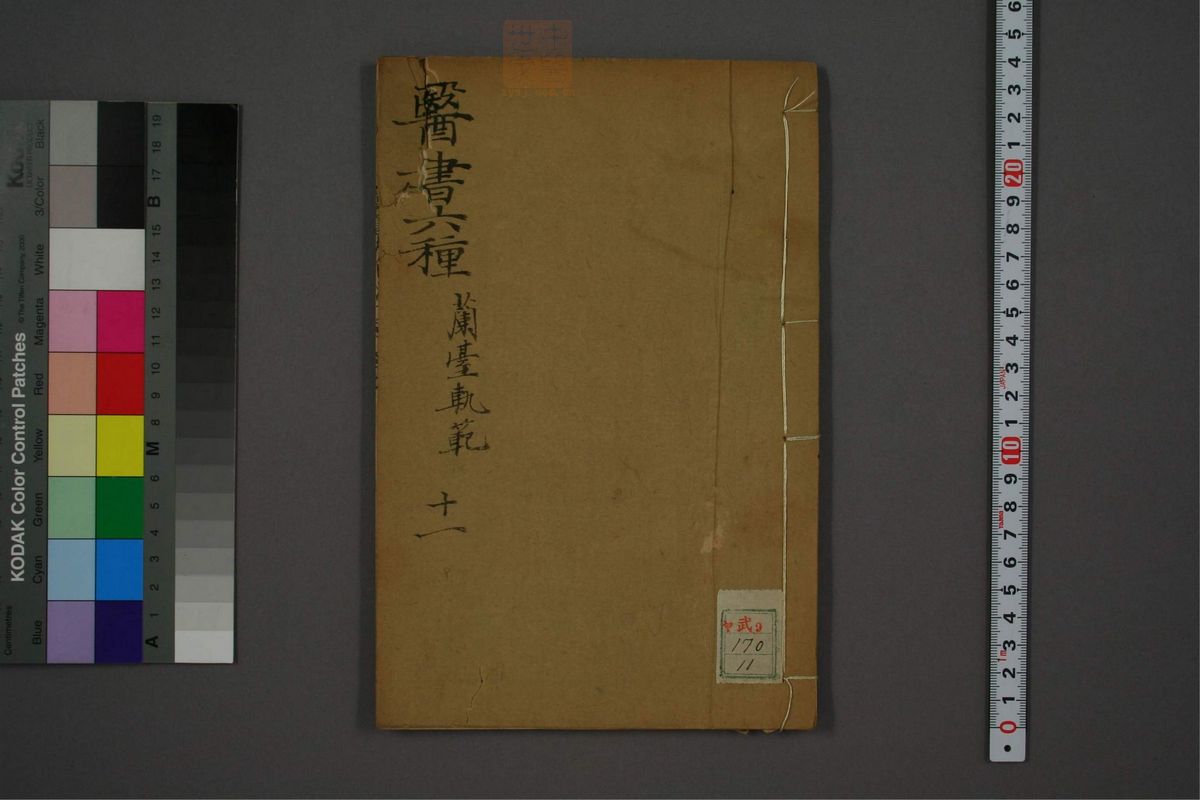 醫書六種
蘭臺軌範
十一
武9
170
11
KODAK Color Control Patches
© The Tiffen Company, 2000
Kodak
Centimetres
Blue
Cyan
Green
Yellow
Red
Magenta
White
3/Color
Black
A 1 2 3 4 5 6 M 8 9 10 11 12 13 14 15 B 17 18 19
0 1 2 3 4 5 6 7 8 9 10 1 2 3 4 5 6 7 8 9 20 1 2 3 4 5 6
1m